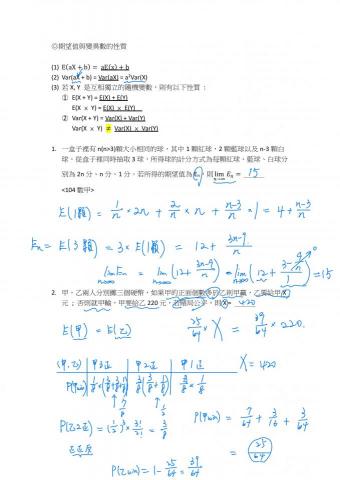 ◎期望值與變異數的性質
(1) E(aX + b) = aE(x) + b
(2) Var(aX + b) = Var(aX) = a²Var(X)
(3) 若 X, Y 是互相獨立的隨機變數，則有以下性質：
① E(X + Y) = E(X) + E(Y)
E(X × Y) = E(X) × E(Y)
② Var(X + Y) = Var(X) + Var(Y)
Var(X × Y) ≠ Var(X) × Var(Y)
1. 一盒子裡有 n(n>3)顆大小相同的球，其中 1 顆紅球、2 顆藍球以及 n-3 顆白
球，從盒子裡同時抽取 3 球，所得球的計分方式為每顆紅球、藍球、白球分
別為 2n 分、n 分、1 分，若所得的期望值為 Eₙ，則 lim n→∞ Eₙ = 15
<104 數甲>
E(1顆) = 1/n × 2n + 2/n × n + n-3/n × 1 = 4 + n-3/n
Eₙ = E(3顆) = 3 × E(1顆) = 12 + 3n-9/n
lim n→∞ Eₙ = lim n→∞ (12 + 3n-9/n) = lim n→∞ (12 + 3-9/n / 1) = 15
2. 甲、乙兩人分別擲三個硬幣，如果甲的正面個數多於乙則甲贏，乙要給甲 X
元；否則就甲輸，甲要給乙 220 元，若賭局公平，則 X= 420
E(甲) = E(乙) 25/64 × X = 39/64 × 220
X = 420
(甲,乙) 甲3正 甲2正 甲1正
P(甲win) 3/8 × 1/8
↑ 7/8 ↑ 1/2
P(乙2正) = (1/2)³ × 3!/2! = 3/8
正正反
P(甲win) = 7/64 + 3/16 + 3/64
= 25/64
P(乙win) = 1 - 25/64 = 39/64